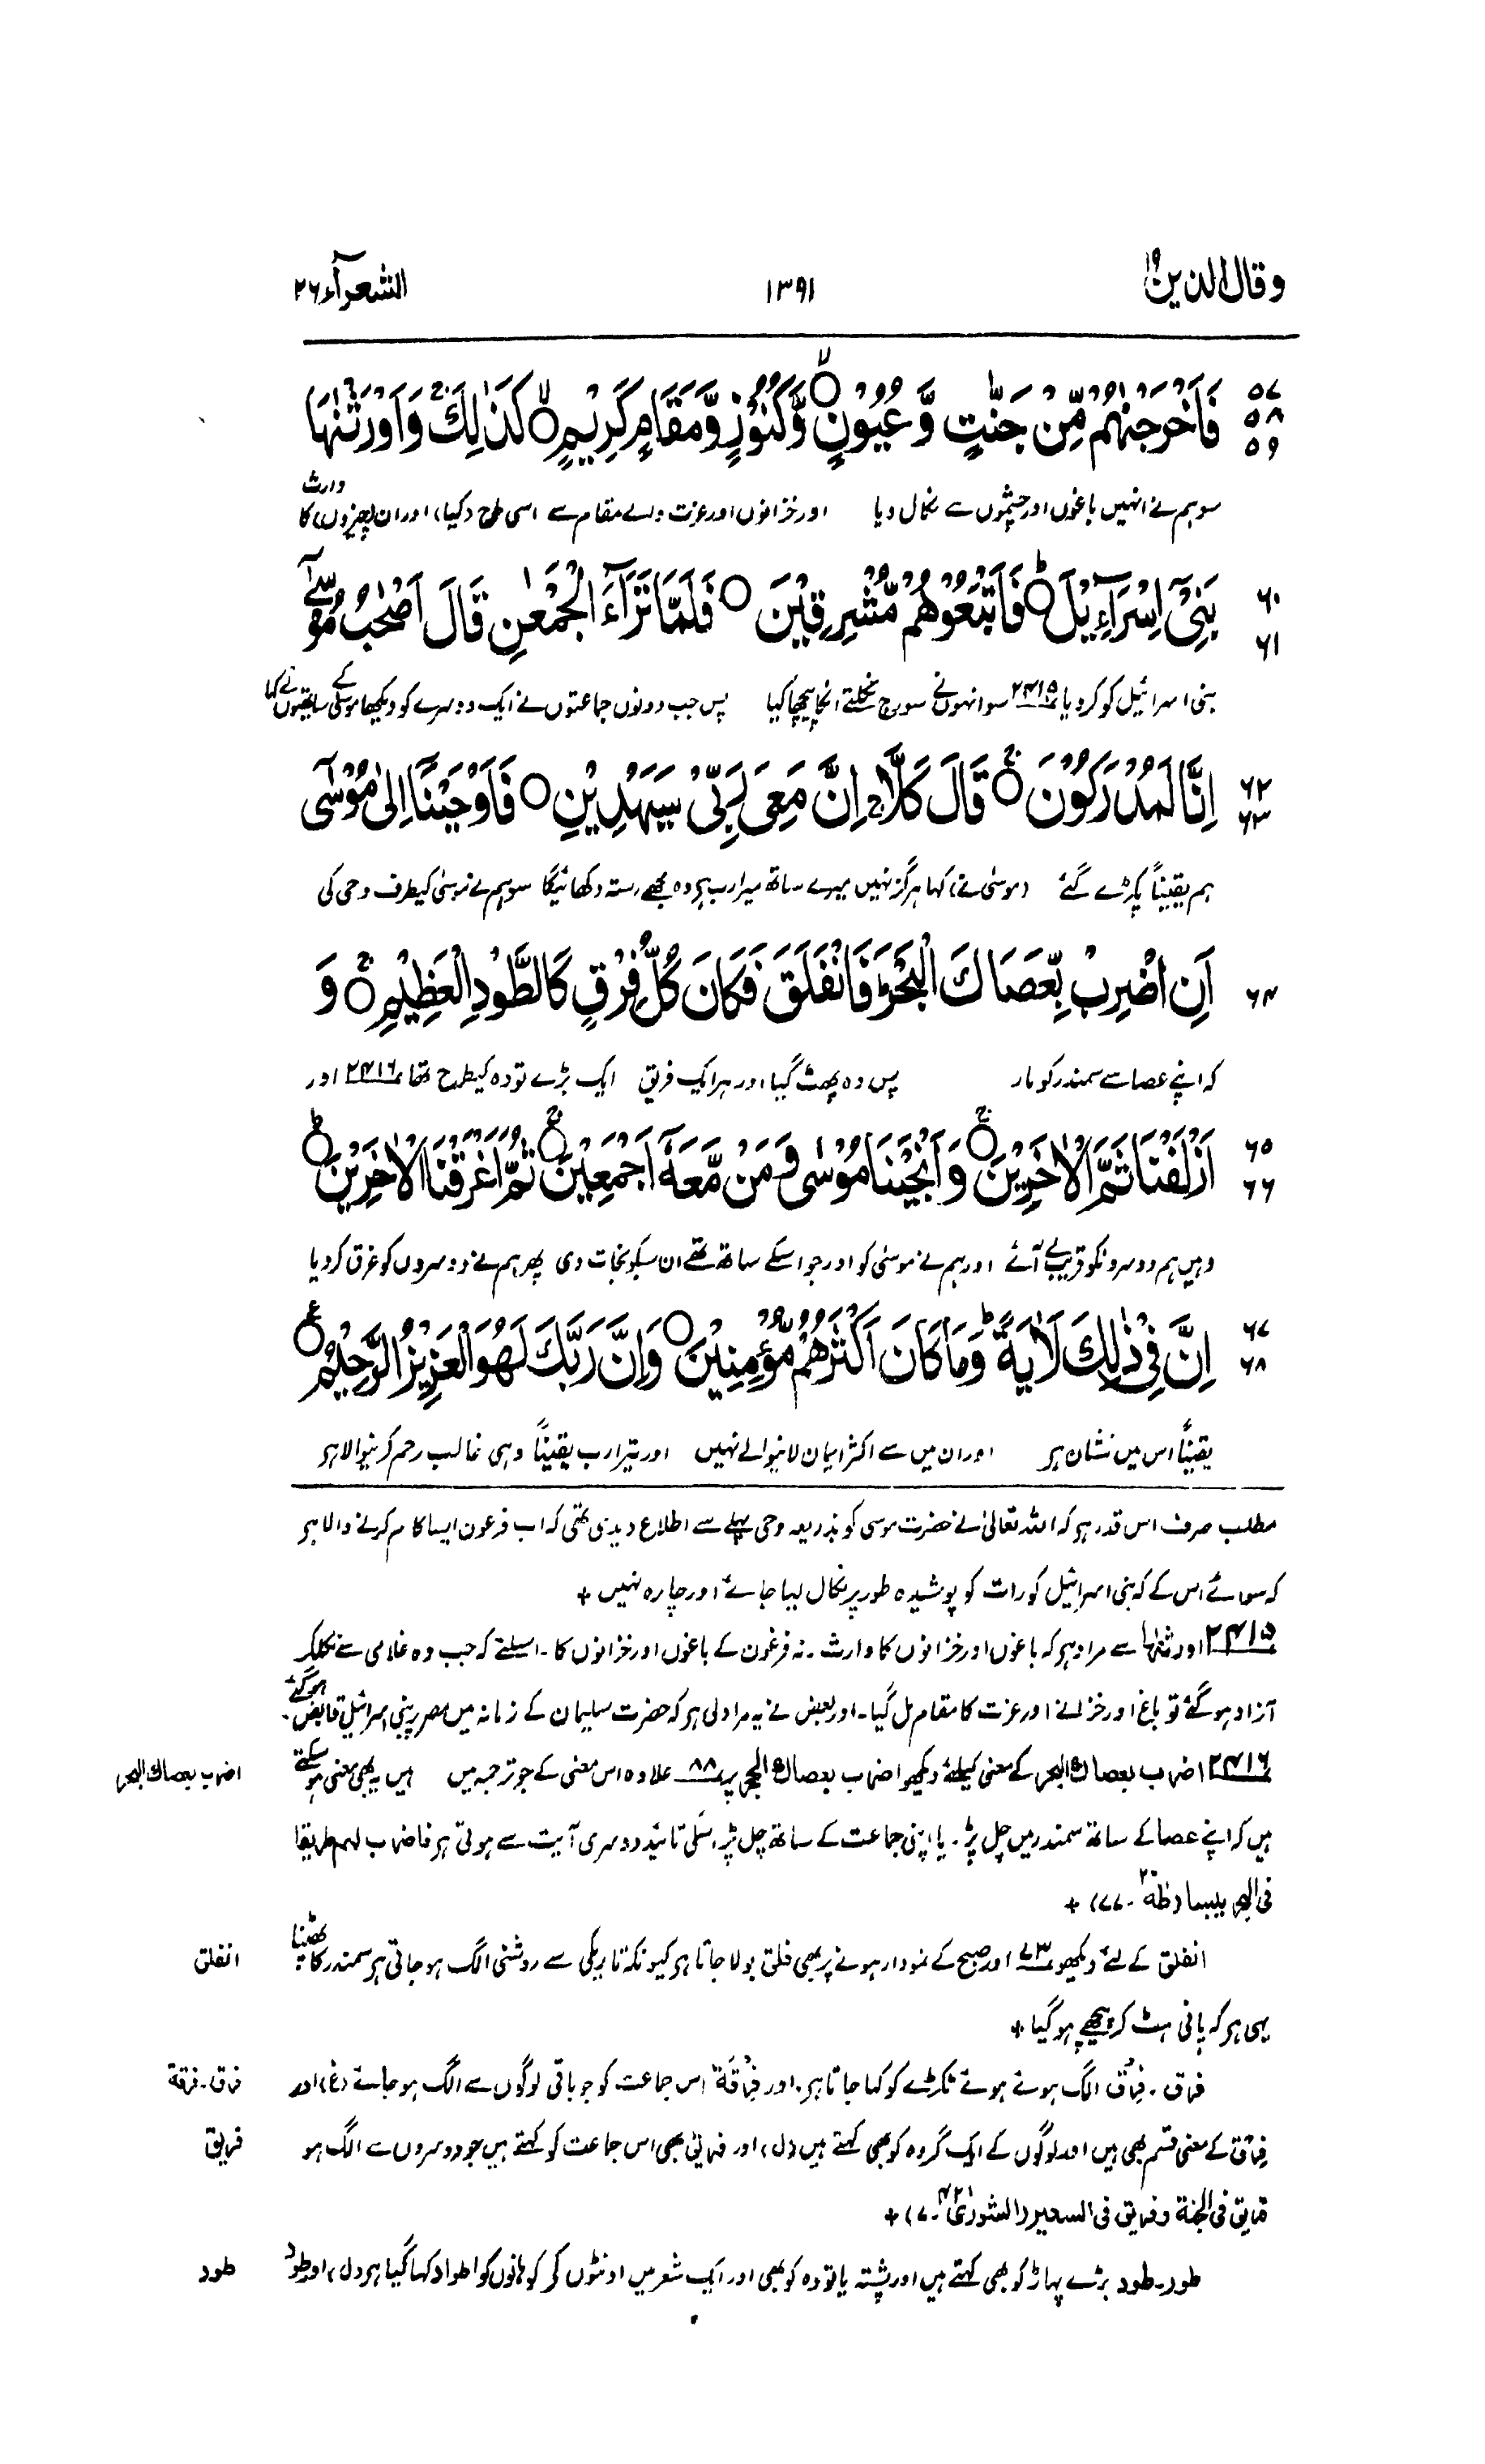 وقال الذین ۱۹
۱۳۹۱
الشعرآء ۲۶
۵۷
۵۸
۵۹
فَاَخْرَجْنٰهُمْ مِّنْ جَنّٰتٍ وَّعُیُوْنٍ ۙ وَّكُنُوْزٍ وَّمَقَامٍ كَرِیْمٍ ۙ كَذٰلِكَ ۚ وَاَوْرَثْنٰهَا
سو ہم نے انہیں باغوں اور چشموں سے نکال دیا اور خزانوں اور عزت والے مقام سے اسی طرح (کیا) اور ان (چیزوں) کا وارث
۶۰
۶۱
بَنِیْۤ اِسْرَآءِیْلَ ؕ فَاَتْبَعُوْهُمْ مُّشْرِقِیْنَ ○ فَلَمَّا تَرَآءَ الْجَمْعٰنِ قَالَ اَصْحٰبُ مُوْسٰۤى
بنی اسرائیل کو کر دیا ۲۴۱۵ سو انہوں نے سورج نکلتے انکا پیچھا کیا پس جب دونوں جماعتوں نے ایک دوسرے کو دیکھا موسٰی کے ساتھیوں نے کہا
۶۲
۶۳
اِنَّا لَمُدْرَكُوْنَ ۚ قَالَ كَلَّا ۚ اِنَّ مَعِیَ رَبِّیْ سَیَهْدِیْنِ ○ فَاَوْحَیْنَاۤ اِلٰى مُوْسٰۤى
ہم یقیناً پکڑے گئے (موسٰی نے) کہا ہرگز نہیں میرے ساتھ میرا رب ہے وہ مجھے رستہ دکھائیگا سو ہم نے موسٰی کیطرف وحی کی
۶۴
اَنِ اضْرِبْ بِّعَصَاكَ الْبَحْرَ ؕ فَانْفَلَقَ فَكَانَ كُلُّ فِرْقٍ كَالطَّوْدِ الْعَظِیْمِ ۚ وَ
کہ اپنے عصا سے سمندر کو مار پس وہ پھٹ گیا اور ہر ایک فریق ایک بڑے تودہ کیطرح تھا ۲۴۱۶ اور
۶۵
۶۶
اَزْلَفْنَا ثَمَّ الْاٰخَرِیْنَ ۚ وَاَنْجَیْنَا مُوْسٰى وَمَنْ مَّعَهٗۤ اَجْمَعِیْنَ ۚ ثُمَّ اَغْرَقْنَا الْاٰخَرِیْنَ ؕ
وہیں ہم دوسرونکو قریب لے آئے اور ہم نے موسٰی کو اور جو اسکے ساتھ تھے ان سبکو نجات دی پھر ہم نے دوسروں کو غرق کر دیا
۶۷
۶۸
اِنَّ فِیْ ذٰلِكَ لَاٰیَةً ؕ وَمَا كَانَ اَكْثَرُهُمْ مُّؤْمِنِیْنَ ○ وَاِنَّ رَبَّكَ لَهُوَ الْعَزِیْزُ الرَّحِیْمُ ۠
یقیناً اس میں نشان ہے اور ان میں سے اکثر ایمان لانیوالے نہیں اور تیرا رب یقیناً وہی غالب رحم کرنیوالا ہے
مطلب صرف اس قدر ہے کہ اللہ تعالیٰ نے حضرت موسی کو بذریعہ وحی پہلے سے اطلاع دیدی تھی کہ اب فرعون ایسا کام کرنے والا ہے
کہ سوائے اس کے کہ بنی اسرائیل کو رات کو پوشیدہ طور پر نکال لیا جائے اور چارہ نہیں +
۲۴۱۵ اورثنٰہا سے مراد ہے کہ باغوں اور خزانوں کا وارث ۔ نہ فرعون کے باغوں اور خزانوں کا ۔ اسلئے کہ جب وہ غلامی سے نکلکر
آزاد ہو گئے تو باغ اور خزانے اور عزت کا مقام مل گیا ۔ اور بعض نے یہ مراد لی ہے کہ حضرت سلیمان کے زمانہ میں مصر پر بنی اسرائیل قابض ہوگئے ۔
۲۴۱۶ اضرب بعصاك البحر کے معنی کیلئے دیکھو اضرب بعصاك الحجر پر ۸۸ علاوہ اس معنی کے جو ترجمہ میں ہیں یہ بھی معنی ہو سکتے
اضرب بعصاك البحر
ہیں کہ اپنے عصا کے ساتھ سمندر میں چل پڑ ۔ یا اپنی جماعت کے ساتھ چل پڑ ، اسکی تائید دوسری آیت سے ہوتی ہے فاضرب لہم طریقا
فی البحر یبسا (طٰهٰ ۲۰ ۔ ۷۷) +
انفلق کے لئے دیکھو ۷۳ اور صبح کے نمودار ہونے پر بھی فلق بولا جاتا ہے کیونکہ تاریکی سے روشنی الگ ہو جاتی ہے سمندر کا پھٹنا
انفلق
یہی ہے کہ پانی ہٹ کر پیچھے ہو گیا +
فرق ۔ فِرْق الگ ہوئے ہوئے ٹکڑے کو کہا جاتا ہے ۔ اور فِرْقَة اس جماعت کو جو باقی لوگوں سے الگ ہو جائے (غ) اور
فرق ۔ فرقة
فِرْق کے معنی قسم بھی ہیں اور لوگوں کے ایک گروہ کو بھی کہتے ہیں (ل) اور فریق بھی اس جماعت کو کہتے ہیں جو دوسروں سے الگ ہو
فریق
فریق فی الجنة وفریق فی السعیر (الشوریٰ ۴۲ ۔ ۷) +
طود ۔ طود بڑے پہاڑ کو بھی کہتے ہیں اور پشتہ یا تودہ کو بھی اور ایک شعر میں اونٹوں کی کوہانوں کو اطواد کہا گیا ہے (ل) اور طود
طود